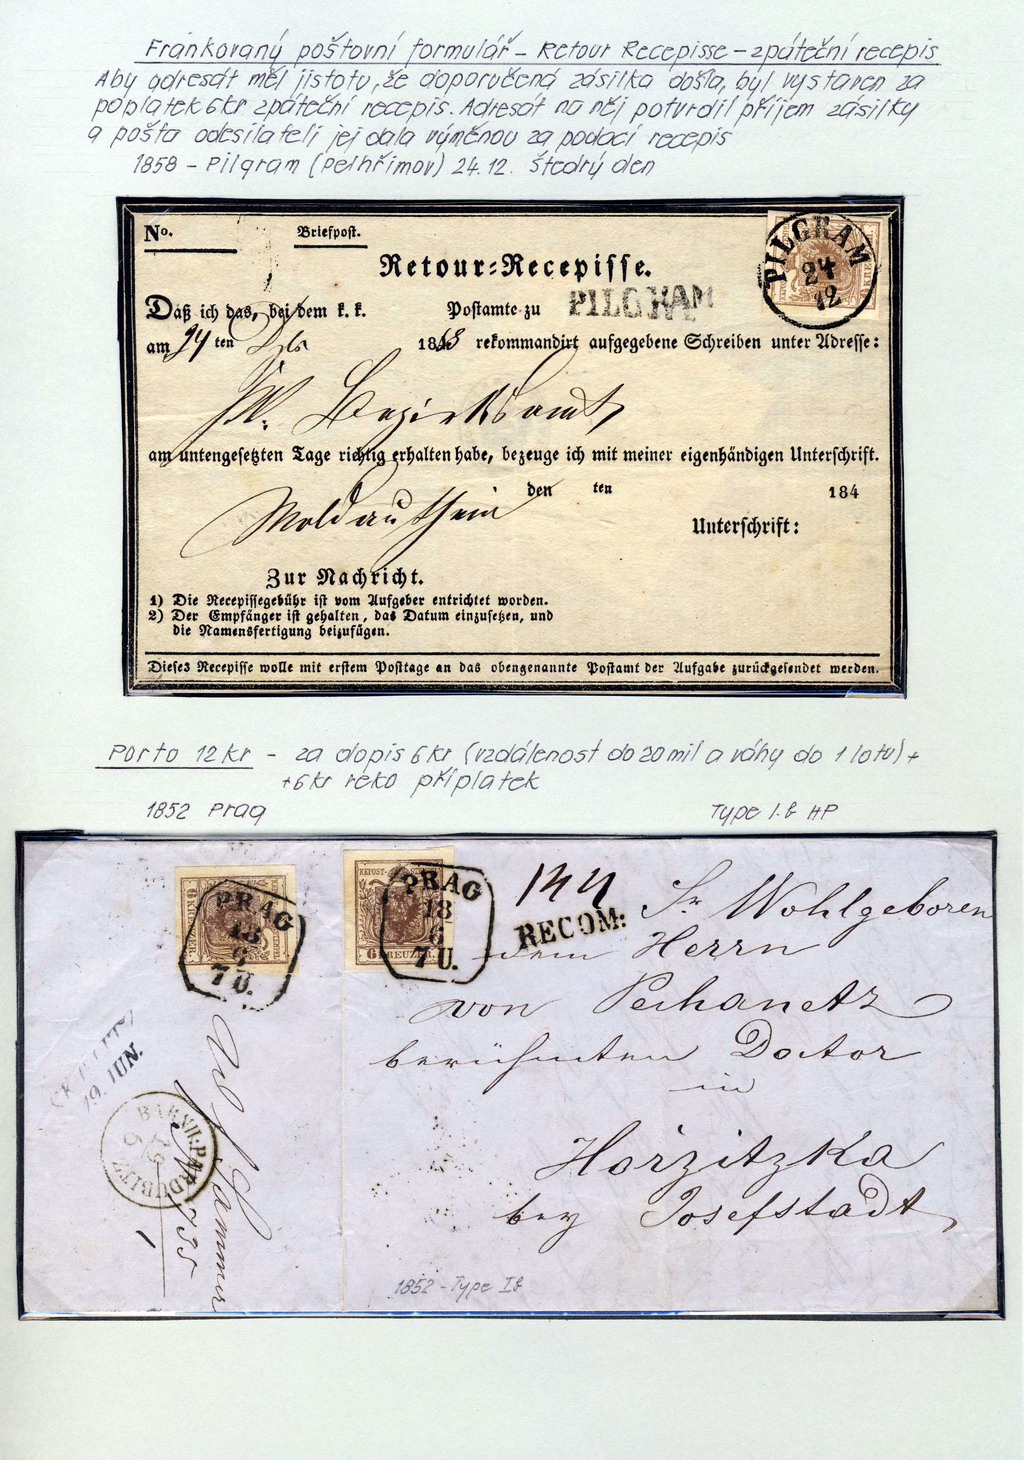 Frankovaný poštovní formulář - Retour Recepisse - zpáteční recepis
Aby adresát měl jistotu, že doporučená zásilka došla, byl vystaven za
poplatek 6kr zpáteční recepis. Adresát na něj potvrdil příjem zásilky
a pošta odesilateli jej dala výměnou za podací recepis
1858 - Pilgram (Pelhřimov) 24.12. štedrý den
No. Briefpost.
PILGRAM
24
12
Retour-Recepisse.
Daß ich das, bei dem k. k. Postamte zu PILGRAM
am 24 ten 184 rekommandirt aufgegebene Schreiben unter Adresse:
Bezirksamt
am untengesetzten Tage richtig erhalten habe, bezeuge ich mit meiner eigenhändigen Unterschrift.
Moldauthein den ten 184
Unterschrift:
Zur Nachricht.
1) Die Recepissegebühr ist vom Aufgeber entrichtet worden.
2) Der Empfänger ist gehalten, das Datum einzusetzen, und
die Namensfertigung beizufügen.
Dieses Recepisse wolle mit erstem Posttage an das obengenannte Postamt der Aufgabe zurückgesendet werden.
Porto 12 kr - za dopis 6kr (vzdálenost do 20 mil a váhy do 1 lotu) +
+ 6kr reko příplatek
1852 Prag Type I.b HP
6 KREUZER
PRAG
18
6
7 U.
6 KREUZER
PRAG
18
6
7 U.
RECOM:
Sr Wohlgeboren
dem Herrn
von Pechanetz
berühmten Doctor
in
Horzitzka
bey Josefstadt
19. JUN.
BAHNH: PARDUBITZ
1852 - Type Ib